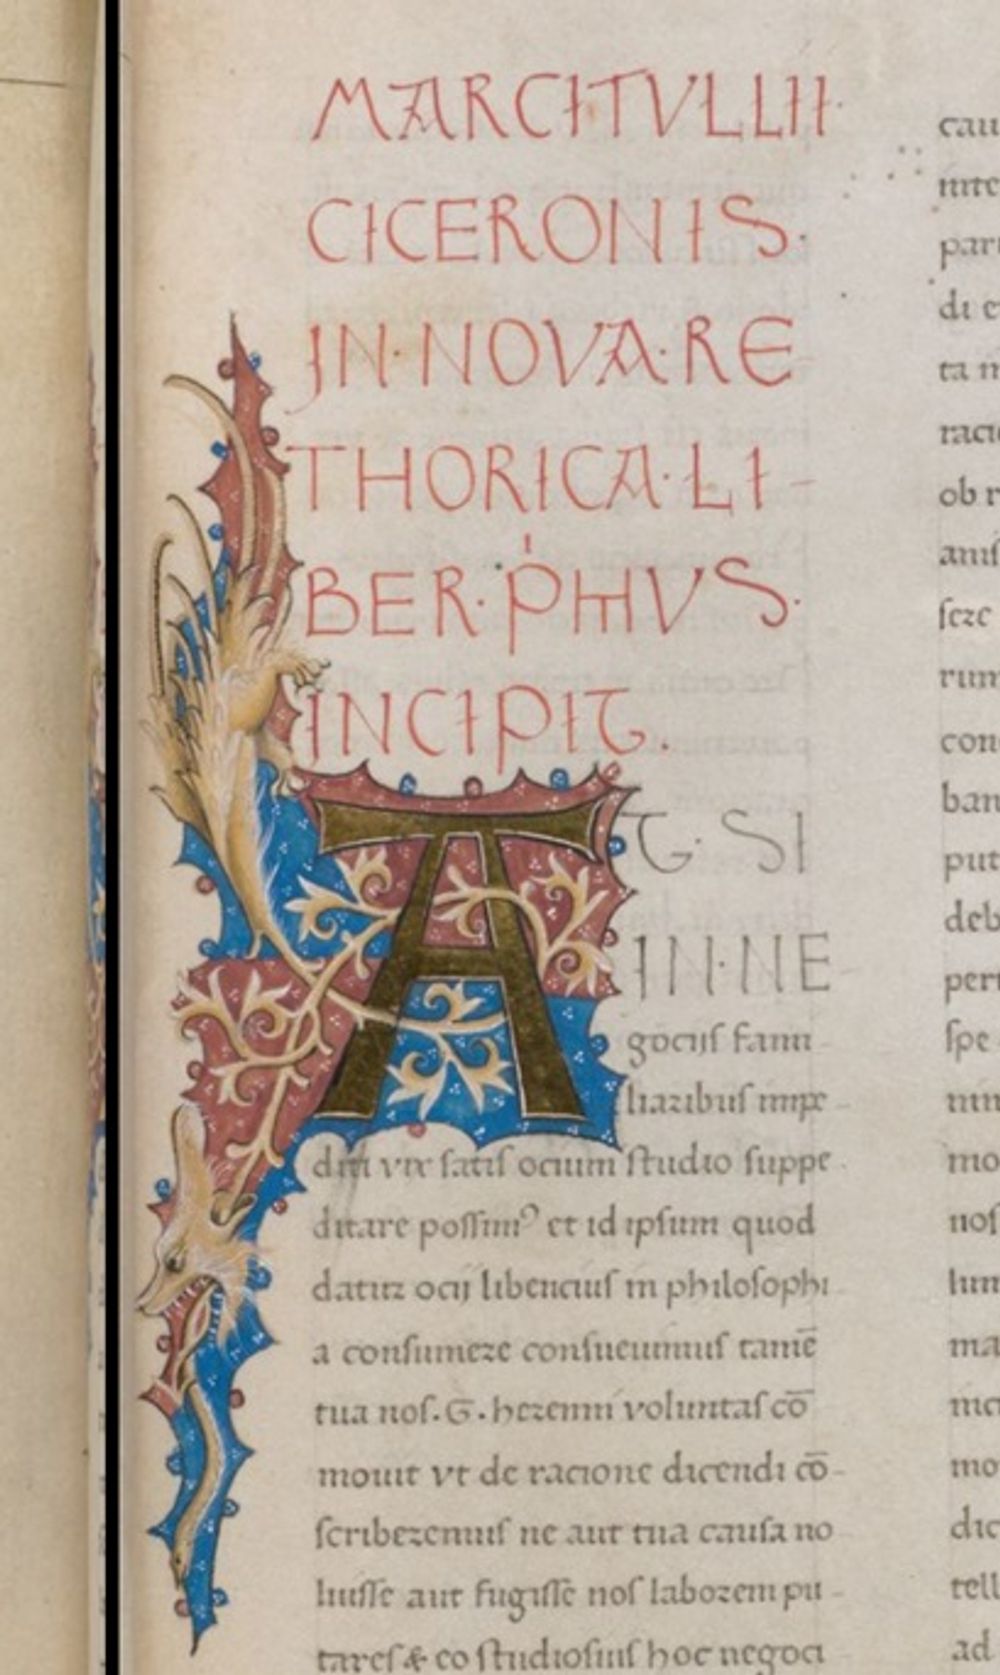 MARCI TVLLII
CICERONIS·
IN·NOVA·RE
THORICA·LI-
BER·PMVS·
INCIPIT.
AT·SI
IN·NE
gociis fami
liaribus impe-
diti vix satis ocium studio suppe
ditare possim⁹ et id ipsum quod
datur ocij libencius in philosophi
a consumere consueuimus tamē
tua nos·G·herenni voluntas cō
mouit vt de racione dicendi cō-
scriberemus ne aut tua causa no
luisse aut fugisse nos laborem pu-
tares & eo studiosius hoc negoci
cau
inte
par
di e
ta
raci
ob
anis
sere
rum
con
ban
put
deb
per
spe
mo
nos
lum
ma
mo
dic
tell
ad